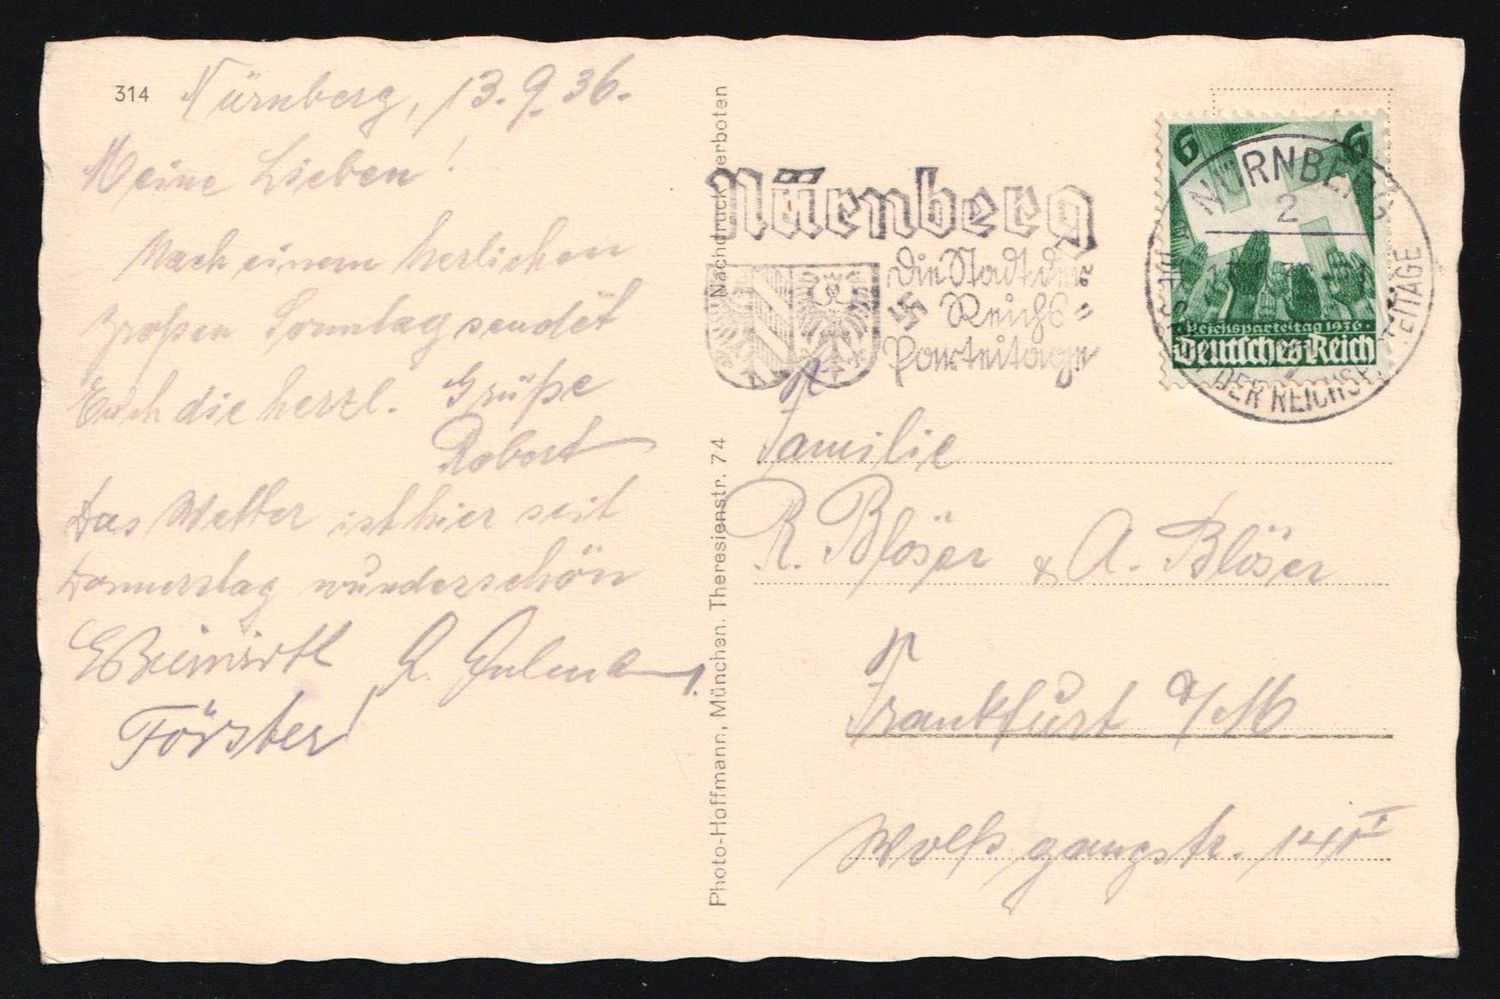 314
Nürnberg, 13. 9. 36.
Meine Lieben!
Nach einem herlichen
großen Sonntag sendet
Euch die herzl. Grüße
Robert
Das Wetter ist hier seit
Donnerstag wunderschön
R.
Förster
Photo-Hoffmann, München. Theresienstr. 74
Nachdruck verboten
Nürnberg
die Stadt der
Reichs-
Parteitage
6 6
Reichsparteitag 1936
Deutsches Reich
NÜRNBERG
2
DER REICHSPARTEITAGE
Familie
R. Blöser & A. Blöser
Frankfurt a/M
Wolfsgangstr.